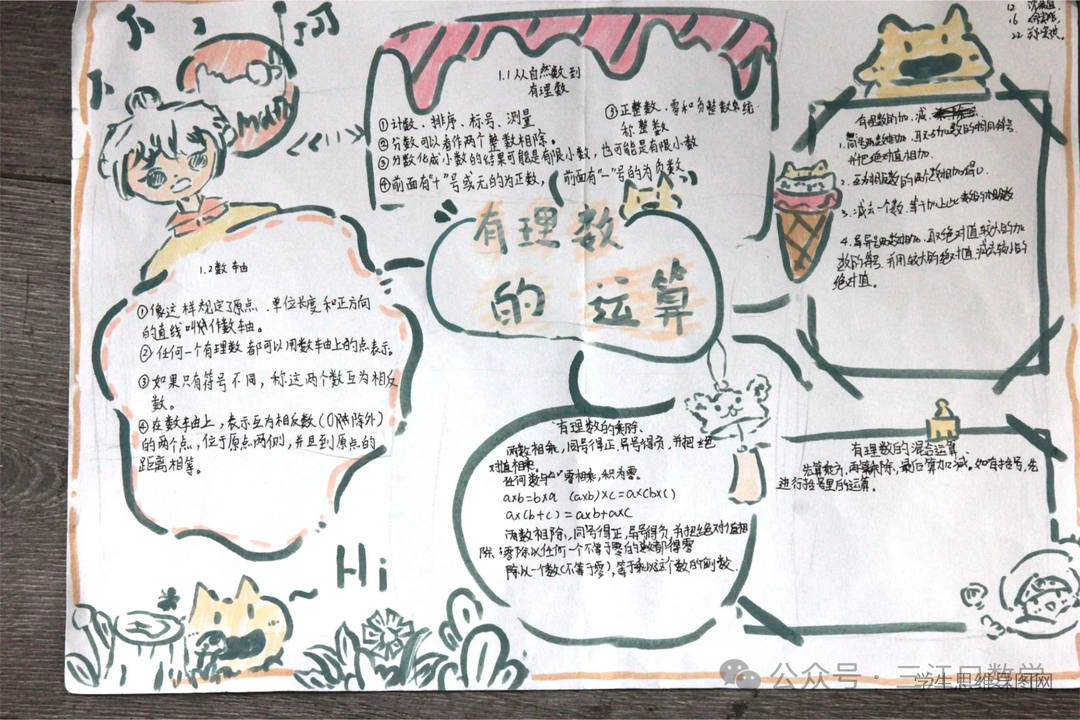 Math
12
16
22
1.1 从自然数到
有理数
①计数、排序、标号、测量
②分数可以看作两个整数相除。
③分数化成小数的结果可能是有限小数,也可能是有限小数
④前面有"+"号或无的为正数, 前面有"-"号的为负数
③正整数、零和负整数系统
称整数
有理数
的运算
有理数的加、减
1. 同号两数相加,取与加数的相同符号,
并把绝对值相加.
2. 互为相反数的两个数相加得0.
3. 减去一个数,等于加上这个数的相反数
4. 异号两数相加,取绝对值较大的加
数的符号,并用较大的绝对值,减去较小的
绝对值。
1.2 数轴
①像这样规定了原点、单位长度和正方向
的直线叫做作数轴。
②任何一个有理数都可以用数轴上的点表示。
③如果只有符号不同,称这两个数互为相反
数。
④在数轴上,表示互为相反数(0除外)
的两个点,位于原点两侧,并且到原点的
距离相等。
有理数的乘除、
两数相乘,同号得正,异号得负,并把绝
对值相乘.
任何数与"0"零相乘,积为零.
a×b=b×a (a×b)×c=a×(b×c)
a×(b+c)=a×b+a×c
两数相除,同号得正,异号得负,并把绝对值相
除;零除以任何一个不等于零的数都得零
除以一个数(不等于零),等于乘以这个数的倒数.
有理数的混合运算.
先算乘方,再算乘除,最后算加减。如有括号,先
进行括号里的运算。
Hi
公众号 · 三江口数学
学生思维导图网